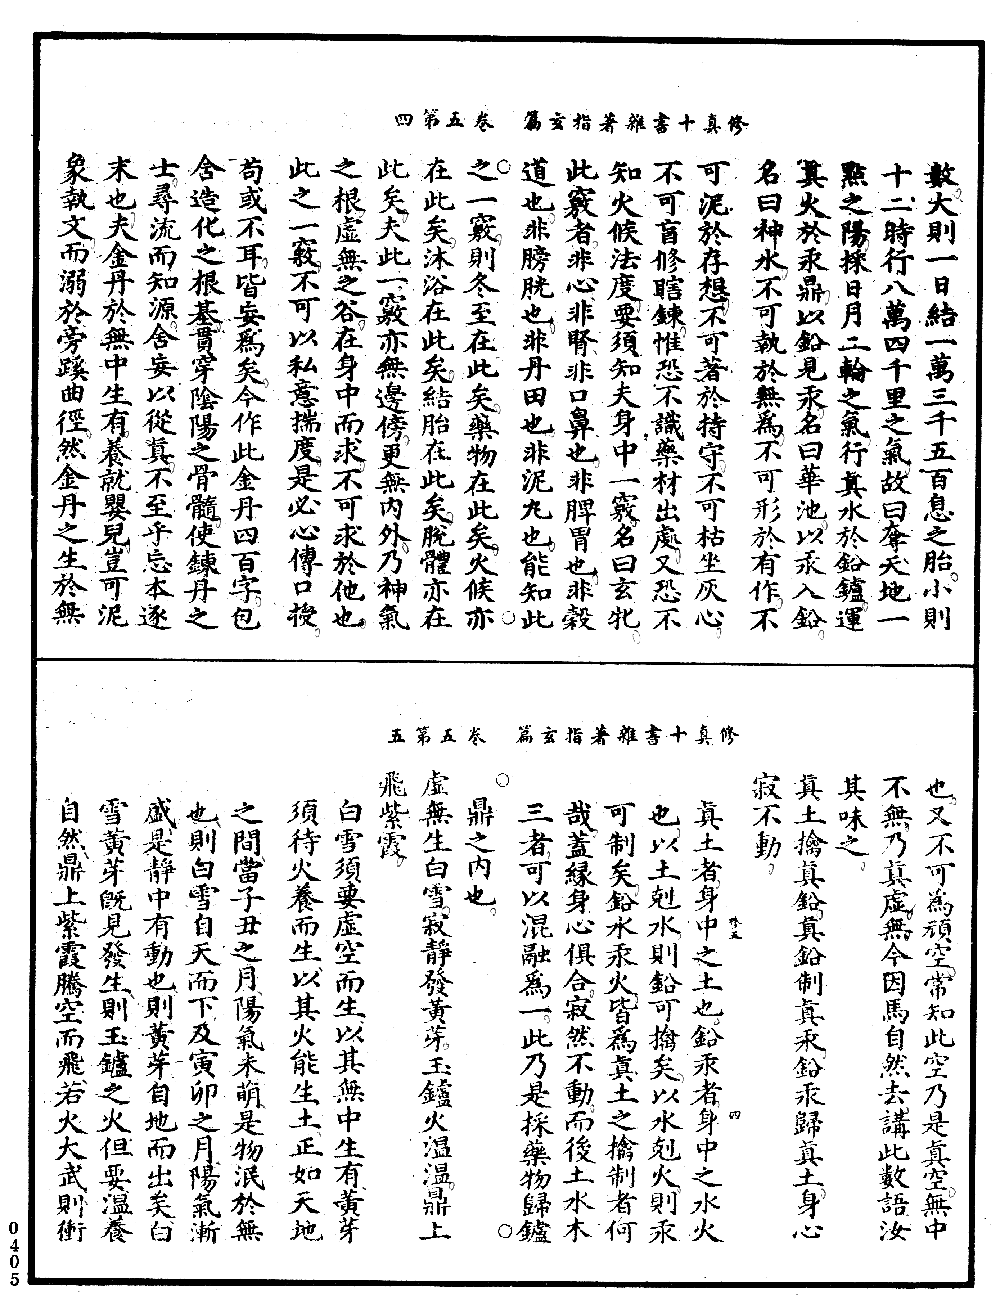 修真十書雜著指玄篇　卷五第四
數。大則一日結一萬三千五百息之胎。小則
十二時行八萬四千里之氣。故曰奪天地一
點之陽。採日月二輪之氣。行真水於鉛鑪。運
真火於汞鼎。以鉛見汞。名曰華池。以汞入鉛。
名曰神水。不可執於無爲。不可形於有作。不
可泥於存想。不可著於持守。不可枯坐灰心。
不可盲修瞎鍊。惟恐不識藥材出處。又恐不
知火候法度。要須知夫身中一竅。名曰玄牝。
此竅者。非心非腎。非口鼻也。非脾胃也。非穀
道也。非膀胱也。非丹田也。非泥丸也。能知此
○之一竅。則冬至在此矣。藥物在此矣。火候亦○
在此矣。沐浴在此矣。結胎在此矣。脫體亦在
此矣。夫此一竅。亦無邊傍。更無內外。乃神氣
之根。虛無之谷。在身中而求。不可求於他也。
此之一竅。不可以私意揣度。是必心傳口授。
苟或不耳。皆妄爲矣。今作此金丹四百字。包
含造化之根基。貫穿陰陽之骨髓。使鍊丹之
士。尋流而知源。舍妄以從真。不至乎忘本逐
末也。夫金丹於無中生有。養就嬰兒。豈可泥
象執文。而溺於旁蹊曲徑。然金丹之生於無
修真十書雜著指玄篇　卷五第五
也。又不可為頑空。常知此空。乃是真空。無中
不無。乃真虛無。今因馬自然去。講此數語。汝
其味之。
真土擒真鉛。真鉛制真汞。鉛汞歸真土。身心
寂不動。
真土者。身中之土也。鉛汞者。身中之水火
也。以土剋水。則鉛可擒矣。以水剋火。則汞
可制矣。鉛水汞火。皆爲真土之擒制者。何
哉。蓋緣身心俱合。寂然不動。而後土水木
三者。可以混融爲一。此乃是採藥物歸鑪
○鼎之內也。○
虛無生白雪。寂靜發黃芽。玉鑪火溫溫。鼎上
飛紫霞。
白雪須要虛空而生。以其無中生有。黃芽
須待火養而生。以其火能生土。正如天地
之間。當子丑之月。陽氣未萌。是物泯於無
也。則白雪自天而下。及寅卯之月。陽氣漸
盛。是靜中有動也。則黃芽自地而出矣。白
雪黃芽。旣見發生。則玉鑪之火。但要溫養
自然鼎上紫霞騰空而飛。若火大武則衝
四
0405